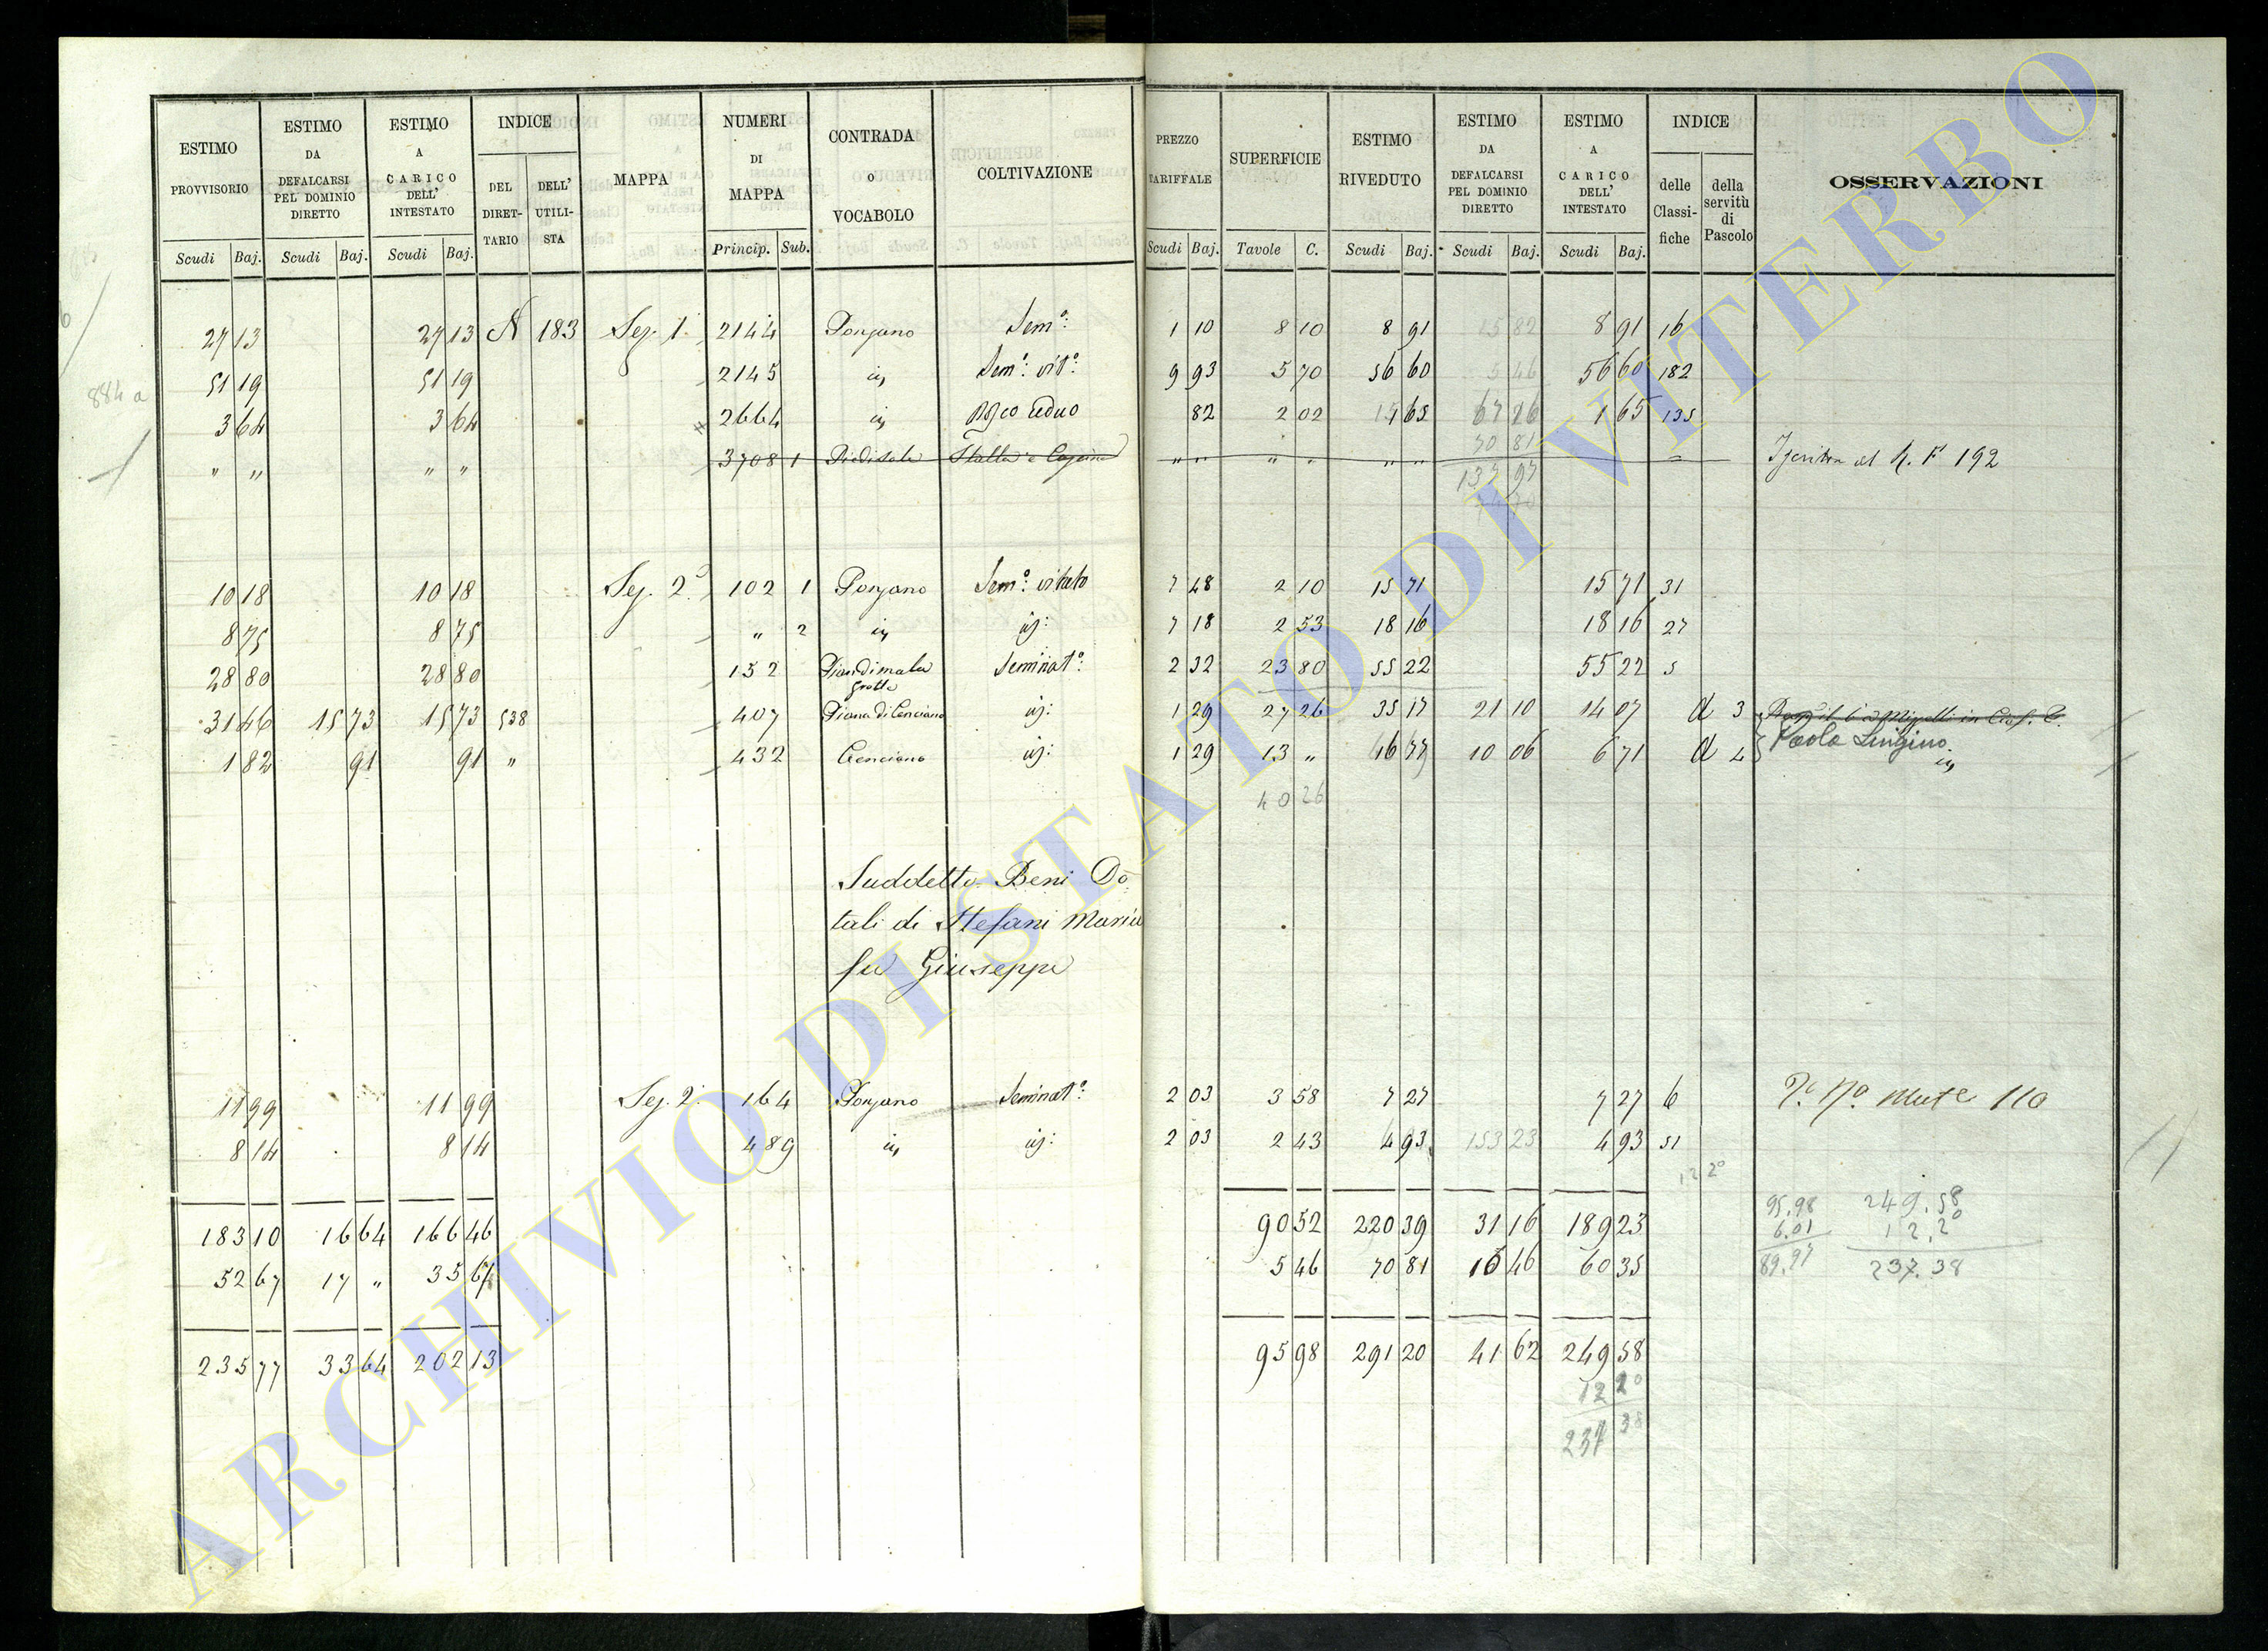 ESTIMO PROVVISORIO Scudi Baj.
ESTIMO DA DEFALCARSI PEL DOMINIO DIRETTO Scudi Baj.
ESTIMO A CARICO DELL' INTESTATO Scudi Baj.
INDICE DEL DIRET-TARIO DELL' UTILI-STA
MAPPA
NUMERI DI MAPPA Princip. Sub.
CONTRADA O VOCABOLO
COLTIVAZIONE
PREZZO TARIFFALE Scudi Baj.
SUPERFICIE Tavole C.
ESTIMO RIVEDUTO Scudi Baj.
ESTIMO DA DEFALCARSI PEL DOMINIO DIRETTO Scudi Baj.
ESTIMO A CARICO DELL' INTESTATO Scudi Baj.
INDICE delle Classi-fiche della servitù di Pascolo
OSSERVAZIONI
27 13 27 13 N 183 Sez. 1 2144 Ponzano Sem.o 1 10 8 10 8 91 15 82 8 91 16
51 19 51 19 2145 id Sem. vit.o 9 93 5 70 56 60 5 46 56 60 182
884 a
3 64 3 64 2664 id Bosco ceduo 82 2 02 1 65 67 16 1 65 135
70 81
" " " " 3708 1 Piedisole Stalla e Cascina " " " " " " Iscritta al R. F 192
137 97
10 18 10 18 Sez. 2.a 102 1 Ponzano Sem.o vitato 7 48 2 10 15 71 15 71 31
8 75 8 75 " 2 id id: 7 18 2 53 18 16 18 16 27
28 80 28 80 152 Piandimala Grotta Seminat.o 2 32 23 80 55 22 55 22 5
31 46 15 73 15 73 538 407 Piana di Cenciano id: 1 29 27 26 35 17 21 10 14 07 A 3
1 82 91 91 " 432 Cenciano id: 1 29 13 " 16 77 10 06 6 71 A 4 Paolo Luigino
id
40 26
Suddetto Beni Do
tali di Stefani Maria
fu Giuseppe
11 99 11 99 Sez. 2. 164 Ponzano Seminat.o 2 03 3 58 7 27 7 27 6 P.o N.o Mut.e 110
8 14 8 14 489 id id: 2 03 2 43 4 93 153 23 4 93 51
12 20
95.98 249.58
183 10 16 64 166 46 90 52 220 39 31 16 189 23 6.01 12.20
52 67 17 " 35 67 5 46 70 81 10 46 60 35 89.97 237.38
235 77 33 64 202 13 95 98 291 20 41 62 249 58
12 20
237 38
ARCHIVIO DI STATO DI VITERBO